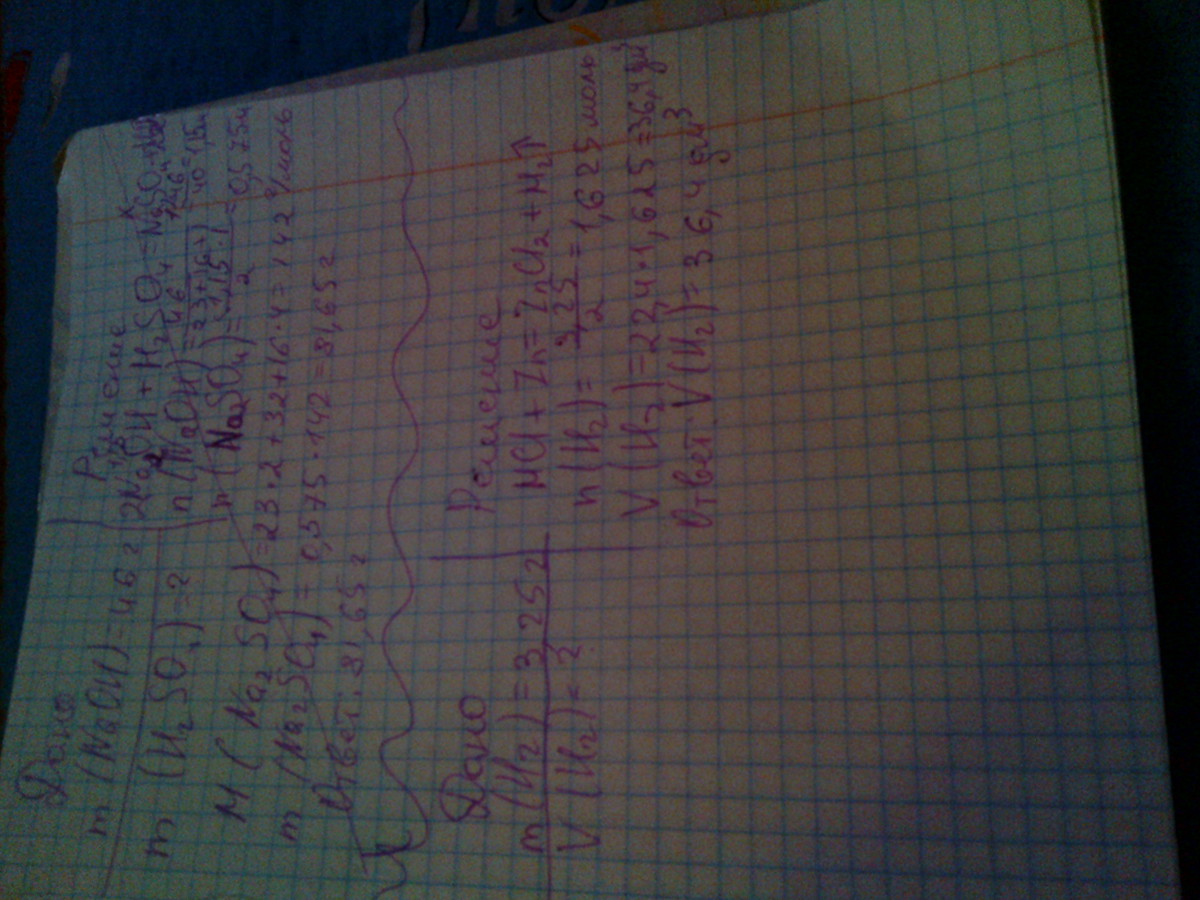 Дано
m (NaOH) = 46 г
m (H₂SO₄) = ?
Решение
2NaOH + H₂SO₄ = Na₂SO₄
n (NaOH) = 46 / 23+16+1 = 46 / 40 = 1,15
n (Na₂SO₄) = 1,15·1 / 2 = 0,575м
M (Na₂SO₄) = 23·2+32+16·4=142 г/моль
m (Na₂SO₄) = 0,575·142=81,65 г
Ответ: 81,65 г
Дано
m (H₂) = 3,25 г
V (H₂) = ?
Решение
HCl + Zn = ZnCl₂ + H₂↑
n (H₂) = 3,25 / 2 = 1,625 моль
V (H₂) = 22,4·1,625=36,4 дм³
Ответ: V (H₂) = 36,4 дм³